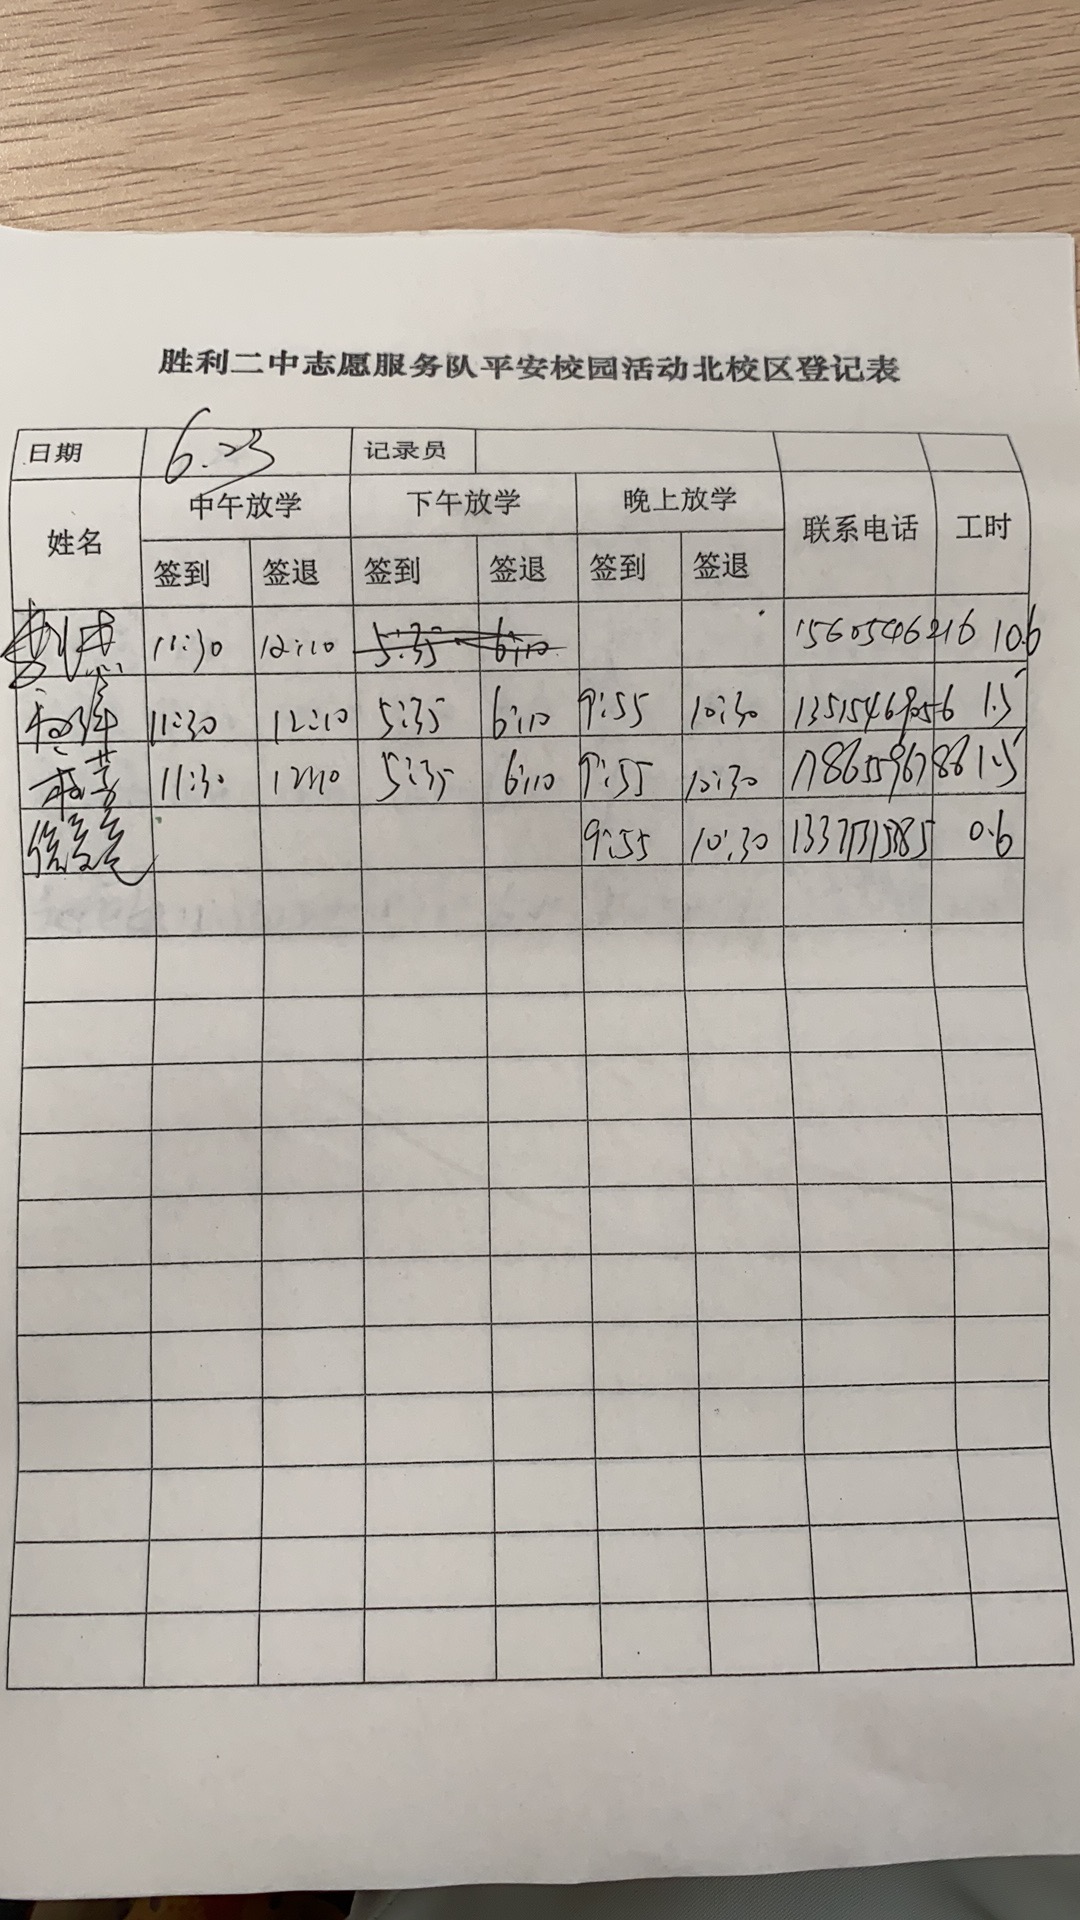 胜利二中志愿服务队平安校园活动北校区登记表
日期 6.23 记录员
姓名 中午放学 下午放学 晚上放学 联系电话 工时
签到 签退 签到 签退 签到 签退
11:30 12:10 5:35 6:10
11:30 12:10 5:35 6:10 9:55 10:30 1.5
11:30 12:10 5:35 6:10 9:55 10:30 17865596786 1.5
9:55 10:30 0.6